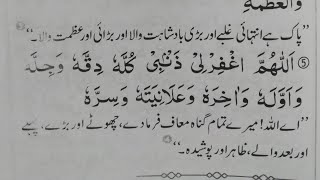 وَالْعَظَمَةِ
’’پاک ہے انتہائی غلبے اور بڑی بادشاہت والا اور بڑائی اور عظمت والا۔‘‘
⑤ اَللّٰهُمَّ اغْفِرْ لِىْ ذَنْۢبِىْ كُلَّهٗ دِقَّهٗ وَجِلَّهٗ
وَاَوَّلَهٗ وَاٰخِرَهٗ وَعَلَانِيَتَهٗ وَسِرَّهٗ
’’اے اللہ! میرے تمام گناہ معاف فرما دے، چھوٹے اور بڑے، پہلے
اور بعد والے، ظاہر اور پوشیدہ۔‘‘